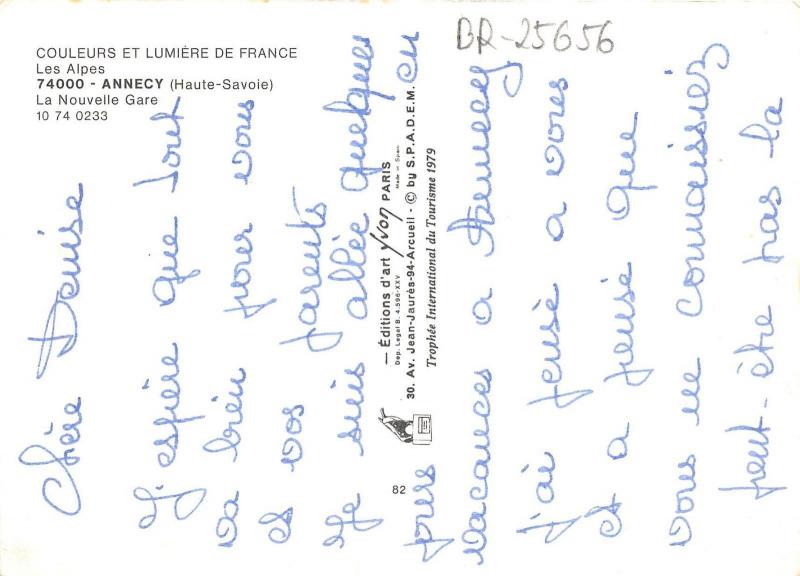 BR-25656
COULEURS ET LUMIÈRE DE FRANCE
Les Alpes
74000 - ANNECY (Haute-Savoie)
La Nouvelle Gare
10 74 0233
— Éditions d'art yvon PARIS
Dep. Legal B. 4.596-XXV
Made in Spain
30. Av. Jean-Jaurès-94-Arcueil - © by S.P.A.D.E.M.
Trophée International du Tourisme 1979
82
Chère Denise
J'espère que tout
va bien pour vous
et vos parents
Je suis allée quelques
jours en
vacances a Annecy
j'ai pensé a vous
et a pensé que
vous ne connaissiez
peut-être pas la